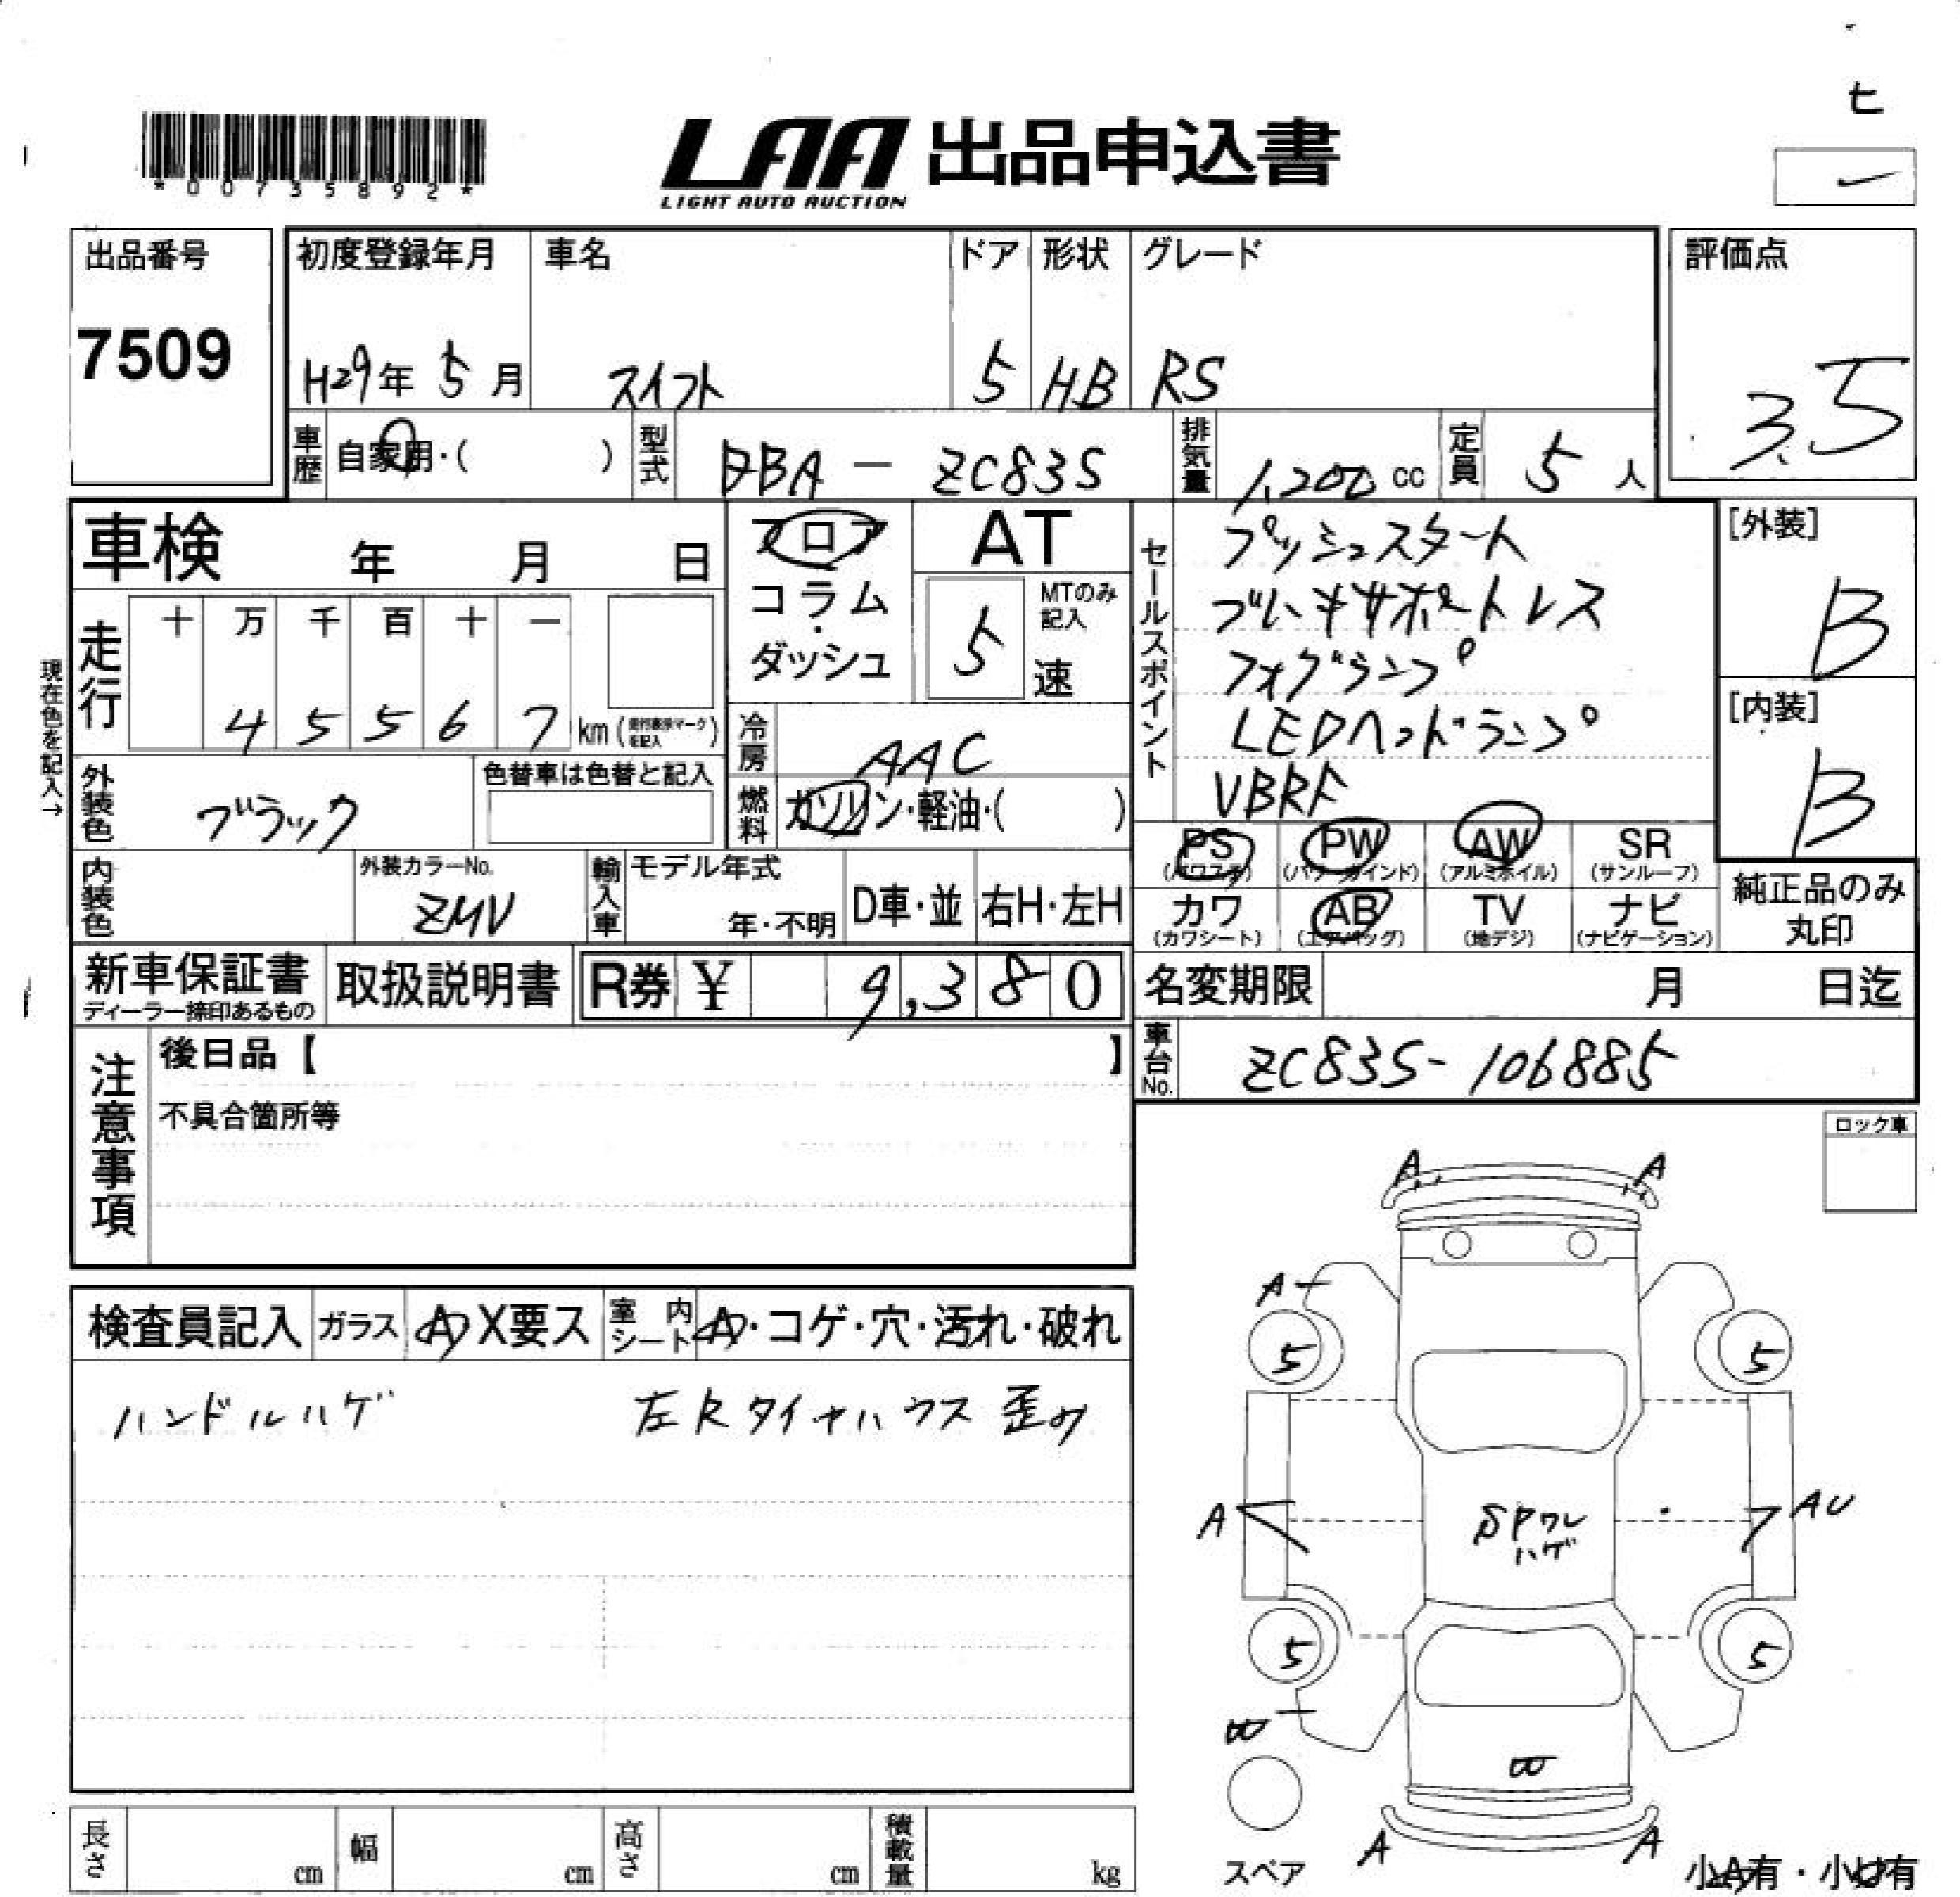 ヒ
*00735892*
LAA 出品申込書
LIGHT AUTO AUCTION
出品番号
7509
初度登録年月
H29年 5月
車名
スイフト
ドア
5
形状
HB
グレード
RS
評価点
3.5
車歴 自家用・( )
型式 DBA - ZC83S
排気量 1,200 cc
定員 5 人
車検 年 月 日
フロア
コラム
・
ダッシュ
AT
5 速
MTのみ
記入
セールスポイント
プッシュスタート
ブレーキサポートレス
フォグランプ
LEDヘッドランプ
VBRF
[外装]
B
[内装]
B
現在色を記入→
走行
十 万 千 百 十 一
4 5 5 6 7 km
冷房 AAC
外装色 ブラック
色替車は色替と記入
燃料 ガソリン・軽油・( )
PS (パワステ)
PW (パワーウインド)
AW (アルミホイル)
SR (サンルーフ)
カワ (カワシート)
AB (エアバッグ)
TV (地デジ)
ナビ (ナビゲーション)
純正品のみ
丸印
内装色
外装カラーNo.
ZMV
輸入車
モデル年式
年・不明
D車・並
右H・左H
新車保証書
ディーラー捺印あるもの
取扱説明書
R券 ¥ 9,380
名変期限 月 日迄
車台No. ZC83S-106885
注意事項
後日品【 】
不具合箇所等
ロック車
検査員記入
ガラス
A X要ス
室内シート
A・コゲ・穴・汚れ・破れ
ハンドルハゲ
左Rタイヤハウス 歪み
A A
A
5 5
A AU
SPワレ
ハゲ
5 5
W
W
A A
スペア
小A有・小U有
長さ cm
幅 cm
高さ cm
積載量 kg